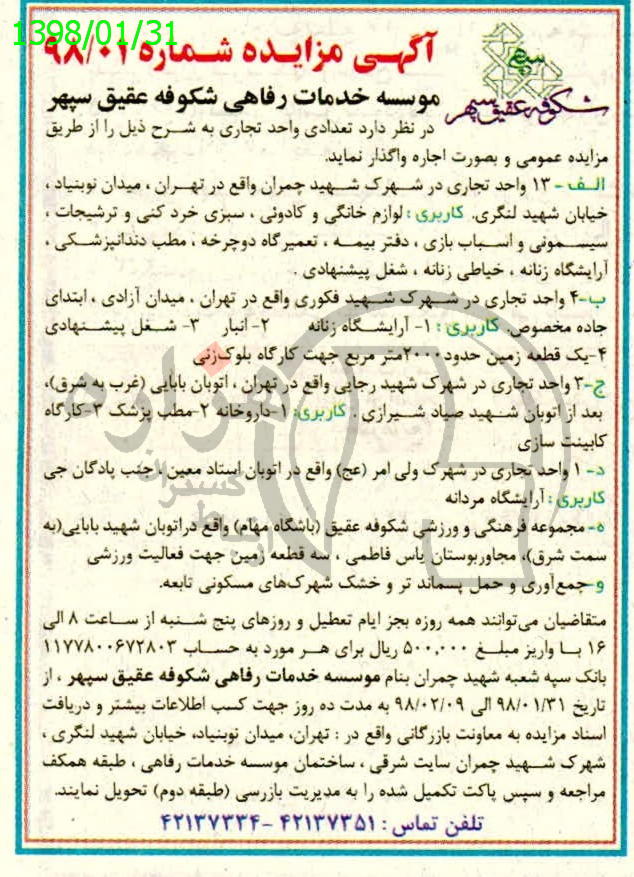 1398/01/31
آگهی مزایده شماره ۹۸/۰۱
سپهر
شکوفه عقیق سپهر
موسسه خدمات رفاهی شکوفه عقیق سپهر
در نظر دارد تعدادی واحد تجاری به شرح ذیل را از طریق
مزایده عمومی و بصورت اجاره واگذار نماید.
الف - ۱۳ واحد تجاری در شهرک شهید چمران واقع در تهران ، میدان نوبنیاد ،
خیابان شهید لنگری. کاربری : لوازم خانگی و کادوئی ، سبزی خرد کنی و ترشیجات ،
سیسمونی و اسباب بازی ، دفتر بیمه ، تعمیرگاه دوچرخه ، مطب دندانپزشکی ،
آرایشگاه زنانه ، خیاطی زنانه ، شغل پیشنهادی .
ب-۴ واحد تجاری در شهرک شهید فکوری واقع در تهران ، میدان آزادی ، ابتدای
جاده مخصوص. کاربری : ۱- آرایشگاه زنانه ۲- انبار ۳- شغل پیشنهادی
۴-یک قطعه زمین حدود۲۰۰۰متر مربع جهت کارگاه بلوک‌زنی
ج-۳ واحد تجاری در شهرک شهید رجایی واقع در تهران ، اتوبان بابایی (غرب به شرق)،
بعد از اتوبان شهید صیاد شیرازی . کاربری: ۱-داروخانه ۲-مطب پزشک ۳-کارگاه
کابینت سازی
د- ۱ واحد تجاری در شهرک ولی امر (عج) واقع در اتوبان استاد معین ، جنب پادگان جی
کاربری : آرایشگاه مردانه
ه- مجموعه فرهنگی و ورزشی شکوفه عقیق (باشگاه مهام) واقع دراتوبان شهید بابایی(به
سمت شرق)، مجاوربوستان یاس فاطمی ، سه قطعه زمین جهت فعالیت ورزشی
و-جمع‌آوری و حمل پسماند تر و خشک شهرک‌های مسکونی تابعه.
متقاضیان می‌توانند همه روزه بجز ایام تعطیل و روزهای پنج شنبه از ساعت ۸ الی
۱۶ با واریز مبلغ ۵۰۰,۰۰۰ ریال برای هر مورد به حساب ۱۱۷۷۸۰۰۶۷۲۸۰۳
بانک سپه شعبه شهید چمران بنام موسسه خدمات رفاهی شکوفه عقیق سپهر ، از
تاریخ ۹۸/۰۱/۳۱ الی ۹۸/۰۲/۰۹ به مدت ده روز جهت کسب اطلاعات بیشتر و دریافت
اسناد مزایده به معاونت بازرگانی واقع در : تهران، میدان نوبنیاد، خیابان شهید لنگری ،
شهرک شهید چمران سایت شرقی ، ساختمان موسسه خدمات رفاهی ، طبقه همکف
مراجعه و سپس پاکت تکمیل شده را به مدیریت بازرسی (طبقه دوم) تحویل نمایند.
تلفن تماس : ۴۲۱۳۷۳۵۱ -۴۲۱۳۷۳۳۴